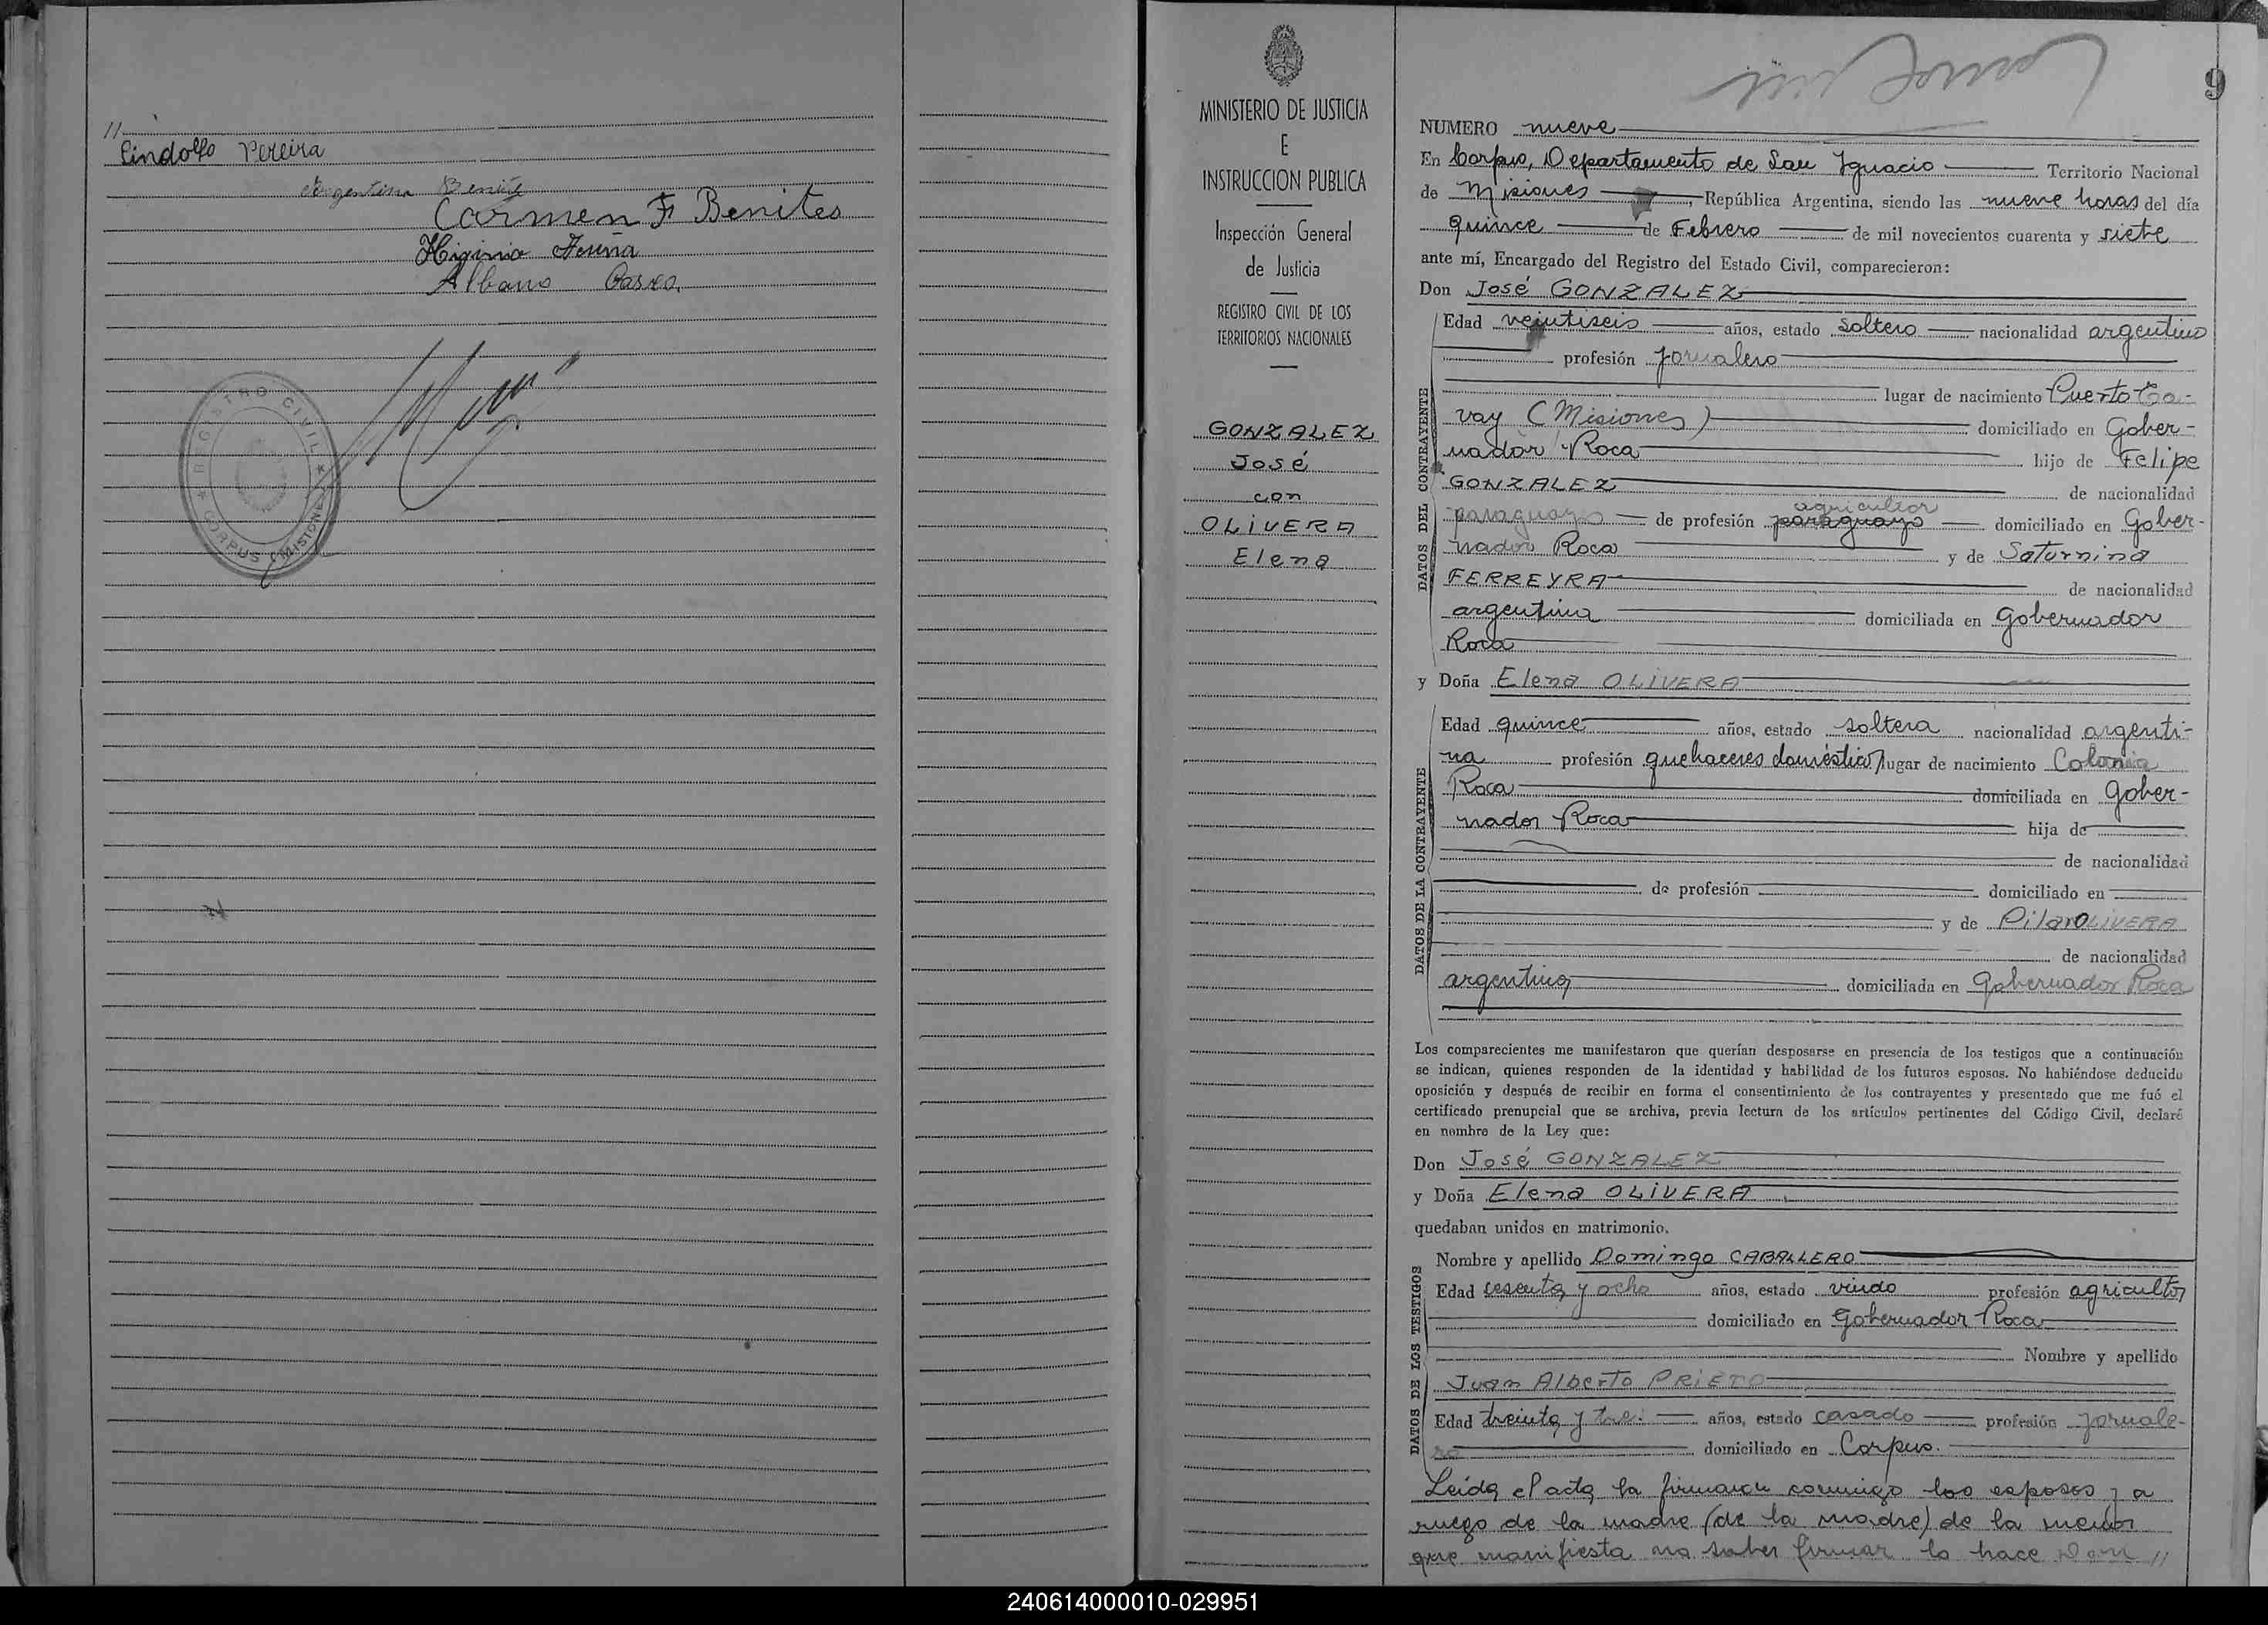 //
Lindolfo Pereira
Argentina Benitez
Carmen F Benites
Higinio
Albano
REGISTRO CIVIL
CORPUS (MISIONES)
MINISTERIO DE JUSTICIA
E
INSTRUCCION PUBLICA
Inspección General
de Justicia
REGISTRO CIVIL DE LOS
TERRITORIOS NACIONALES
GONZALEZ
José
con
OLIVERA
Elena
9
NUMERO nueve
En Corpus, Departamento de San Ignacio Territorio Nacional
de Misiones, República Argentina, siendo las nueve horas del día
quince de Febrero de mil novecientos cuarenta y siete
ante mí, Encargado del Registro del Estado Civil, comparecieron:
Don José GONZALEZ
DATOS DEL CONTRAYENTE
Edad veintiseis años, estado soltero nacionalidad argentino
profesión jornalero
lugar de nacimiento Puerto Ca-
vay (Misiones) domiciliado en Gober-
nador Roca hijo de Felipe
GONZALEZ de nacionalidad
agricultor
paraguayo de profesión paraguayo domiciliado en Gober-
nador Roca y de Saturnina
FERREYRA de nacionalidad
argentina domiciliada en Gobernador
Roca
y Doña Elena OLIVERA
DATOS DE LA CONTRAYENTE
Edad quince años, estado soltera nacionalidad argenti-
na profesión quehaceres domésticos lugar de nacimiento Colonia
Roca domiciliada en Gober-
nador Roca hija de
de nacionalidad
de profesión domiciliado en
y de Pilar OLIVERA
de nacionalidad
argentina domiciliada en Gobernador Roca
Los comparecientes me manifestaron que querían desposarse en presencia de los testigos que a continuación
se indican, quienes responden de la identidad y habilidad de los futuros esposos. No habiéndose deducido
oposición y después de recibir en forma el consentimiento de los contrayentes y presentado que me fué el
certificado prenupcial que se archiva, previa lectura de los artículos pertinentes del Código Civil, declaré
en nombre de la Ley que:
Don José GONZALEZ
y Doña Elena OLIVERA
quedaban unidos en matrimonio.
DATOS DE LOS TESTIGOS
Nombre y apellido Domingo CABALLERO
Edad sesenta y ocho años, estado viudo profesión agricultor
domiciliado en Gobernador Roca
Nombre y apellido
Juan Alberto PRIETO
Edad treinta y tres años, estado casado profesión jornale-
ro domiciliado en Corpus.
Leída el acta la firmaron conmigo los esposos y a
ruego de la madre (de la madre) de la menor
que manifiesta no saber firmar lo hace Don //
240614000010-029951